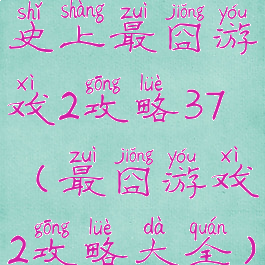 shǐ shàng zuì jiǒng yóu
史上最囧游
xì gōng lüè
戏2攻略37
zuì jiǒng yóu xì
（最囧游戏
gōng lüè dà quán
2攻略大全）